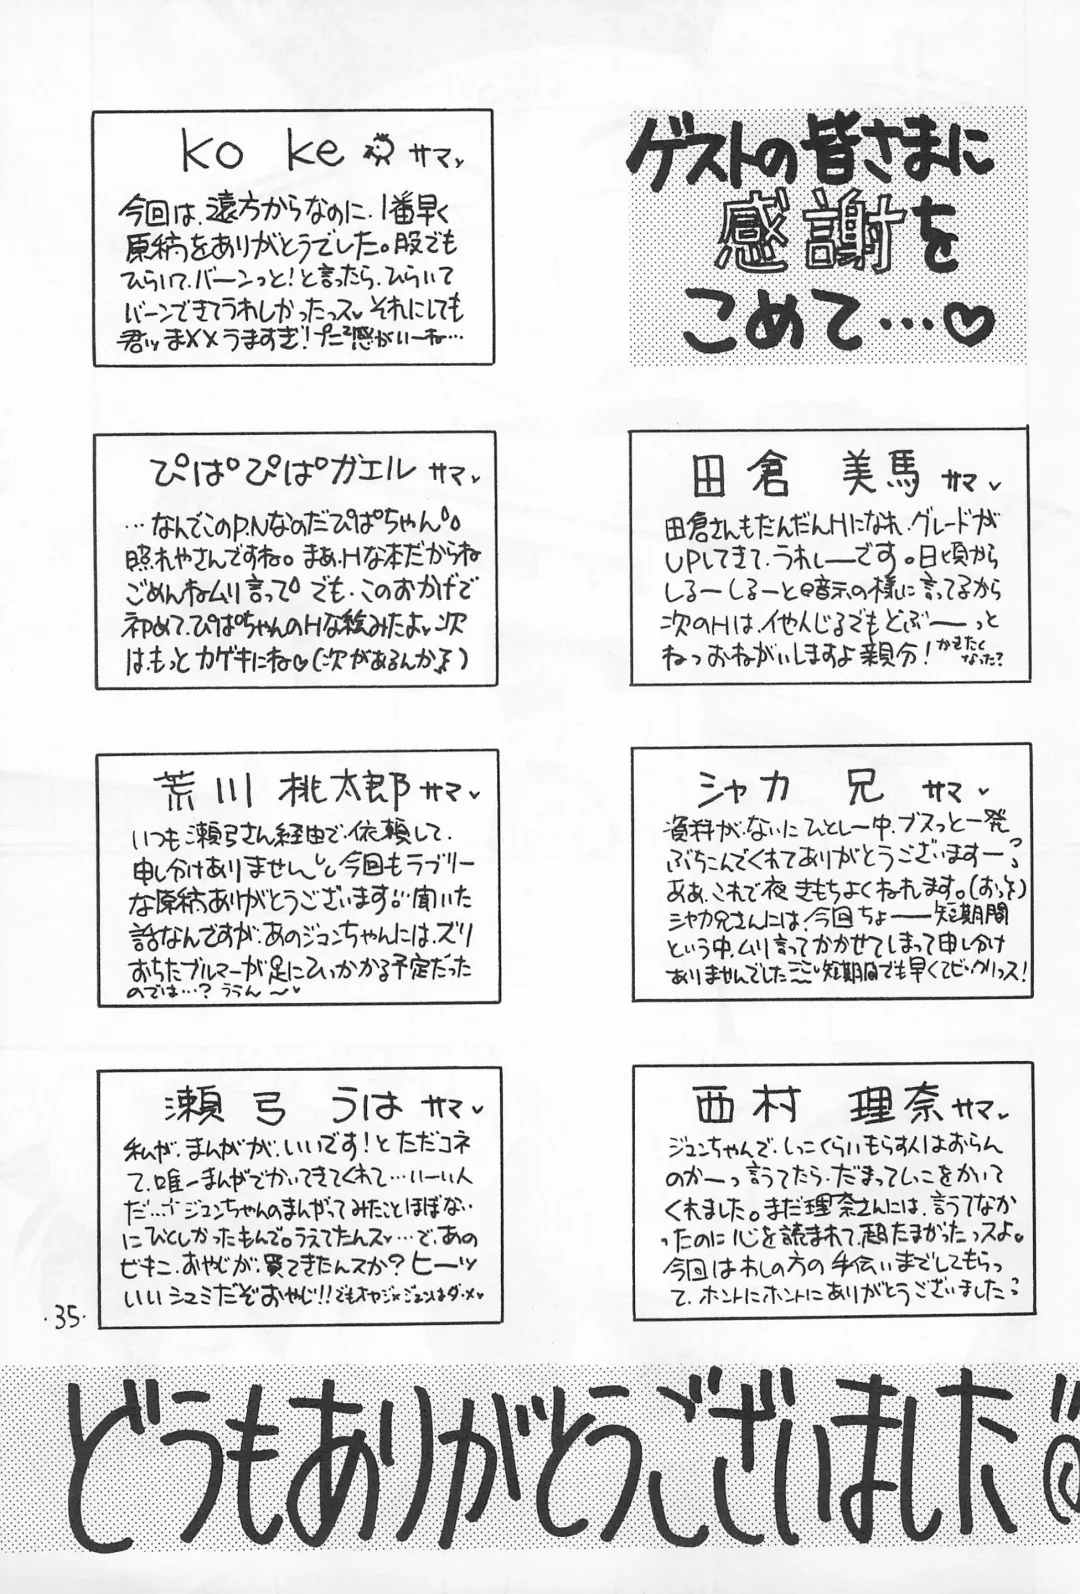 ゲストの皆さまに
感謝を
こめて…♡
ko ke サマ
今回は、遠方からなのに、1番早く
原稿をありがとうでした。股でも
ひらいて、バーンっと!と言ったら、ひらいて
バーンできてうれしかったっス。それにしても
君ッ、ま××うますぎ!プニ²感がいーね…
田倉 美馬 サマ
田倉さんもだんだんHになれ、グレードが
UPしてきて、うれしーです。日頃から
しるーしるーと暗示の様に言ってるから
次のHは、イヤんじるでもどぶーーっと
ねっおねがいしますよ親分!かせたく
なった?
ぴぱ°ぴぱ°ガエル サマ
…なんでこのP.Nなのだぴぱちゃん
照れやさんですね。まぁ、Hな本だからね
ごめんねムリ言って でも、このおかげで
初めて、ぴぱちゃんのHな絵みたよ♥次
は、もっとカゲキにね♡(次があるんか!)
シャカ 兄 サマ
資料が、ないにひとしー中、ブスっと一発
ぶちこんでくれてありがとうございますーっ
ああ、これで夜、きもちよくねれます。(おっと)
シャカ兄さんには、今回ちょーー短期間
という中、ムリ言ってかかせてしまって申し分け
ありませんでした 短期間でも早くてビックリっス!
荒川 桃太郎 サマ
いつも瀬弓さん経由で、依頼して、
申し分けありません 今回もラブリー
な原稿ありがとうございます 聞いた
話なんですが、あのジュンちゃんには、ズリ
おちたブルマーが足にひっかかる予定だった
のでは…?ううん〜
西村 理奈 サマ
ジュンちゃんで、しっこくらいもらす人はおらん
のかーっ言うてたら、だまってしっこをかいて
くれました。まだ理奈さんには、言うてなか
ったのに心を読まれて、超たまがったっスよ。
今回はわしの方の手伝いまでしてもらっ
て、ホントにホントにありがとうございましたっ
瀬弓 うは サマ
私が、まんがが、いいです!とただコネ
て、唯一まんがでかいてきてくれて…いーい人
だ… ジュンちゃんのまんがってみたことほぼない
にひとしかったもんで。うえてたんスッ…で、あの
ビキニ、おやじが、買てきたんスか?ヒーッ
いいシュミだぞおやじ!!でもオヤジ×ジュンはダ・メ♥
・35・
どうもありがとうございました